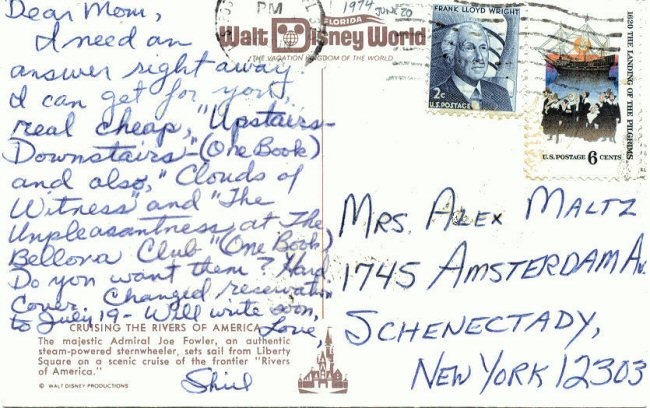 Dear Mom,
I need an
answer right away!
I can get for you,
real cheap, "Upstairs-
Downstairs"-(One Book)
and also, "Clouds of
Witness" and "The
Unpleasantness at The
Bellova Club" (One Book)
Do you want them? Hard
Cover. Changed reservation
to July 19- Will write soon,
Love,
Shirl
PM
1974
JUNE 20
FLORIDA
Walt Disney World
THE VACATION KINGDOM OF THE WORLD
FRANK LLOYD WRIGHT
2¢
U.S. POSTAGE
1620 THE LANDING OF THE PILGRIMS
U.S. POSTAGE 6 CENTS
MRS. ALEX MALTZ
1745 AMSTERDAM AV.
SCHENECTADY,
NEW YORK 12303
CRUISING THE RIVERS OF AMERICA
The majestic Admiral Joe Fowler, an authentic
steam-powered sternwheeler, sets sail from Liberty
Square on a scenic cruise of the frontier "Rivers
of America."
© WALT DISNEY PRODUCTIONS